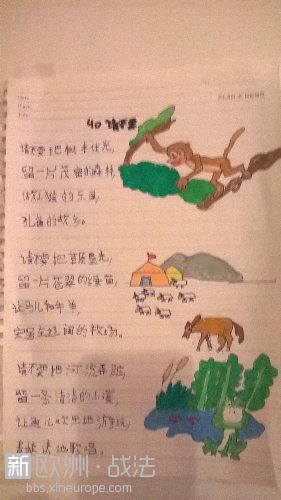 40 请不要
请不要把树木伐光，
留一片茂密的森林，
做小猴的乐园，
孔雀的故乡。
请不要把草原
留一片苍翠的绿茵，
让马儿和牛羊，
的牧场。
请不要把河流弄脏，
留一条清清的小溪，
让鱼儿欢乐地游玩，
青蛙 地歌唱。
新欧洲·战法
bbs.xineurope.com